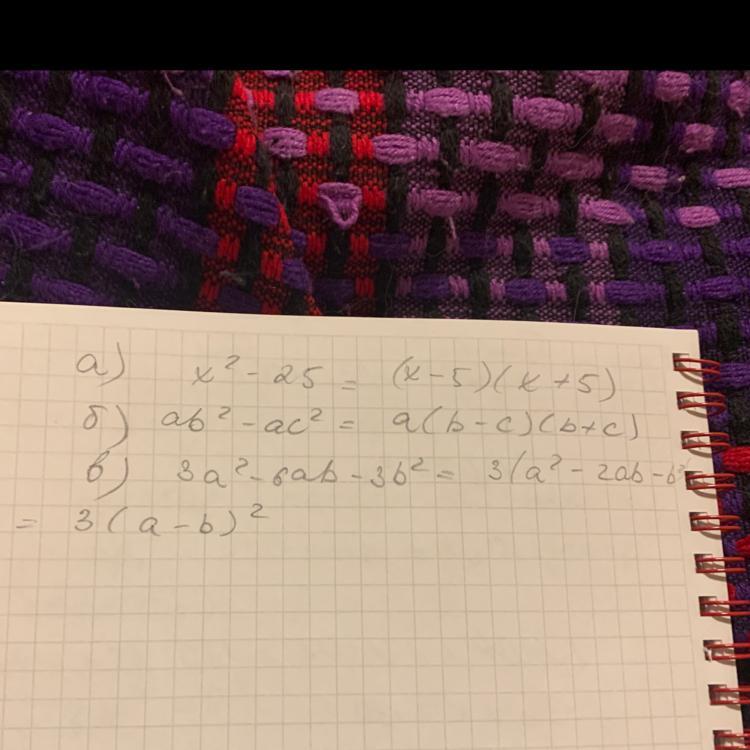 а) x² - 25 = (x - 5)(x + 5)
б) ab² - ac² = a(b - c)(b + c)
в) 3a² - 6ab - 3b² = 3(a² - 2ab - b²
= 3(a - b)²